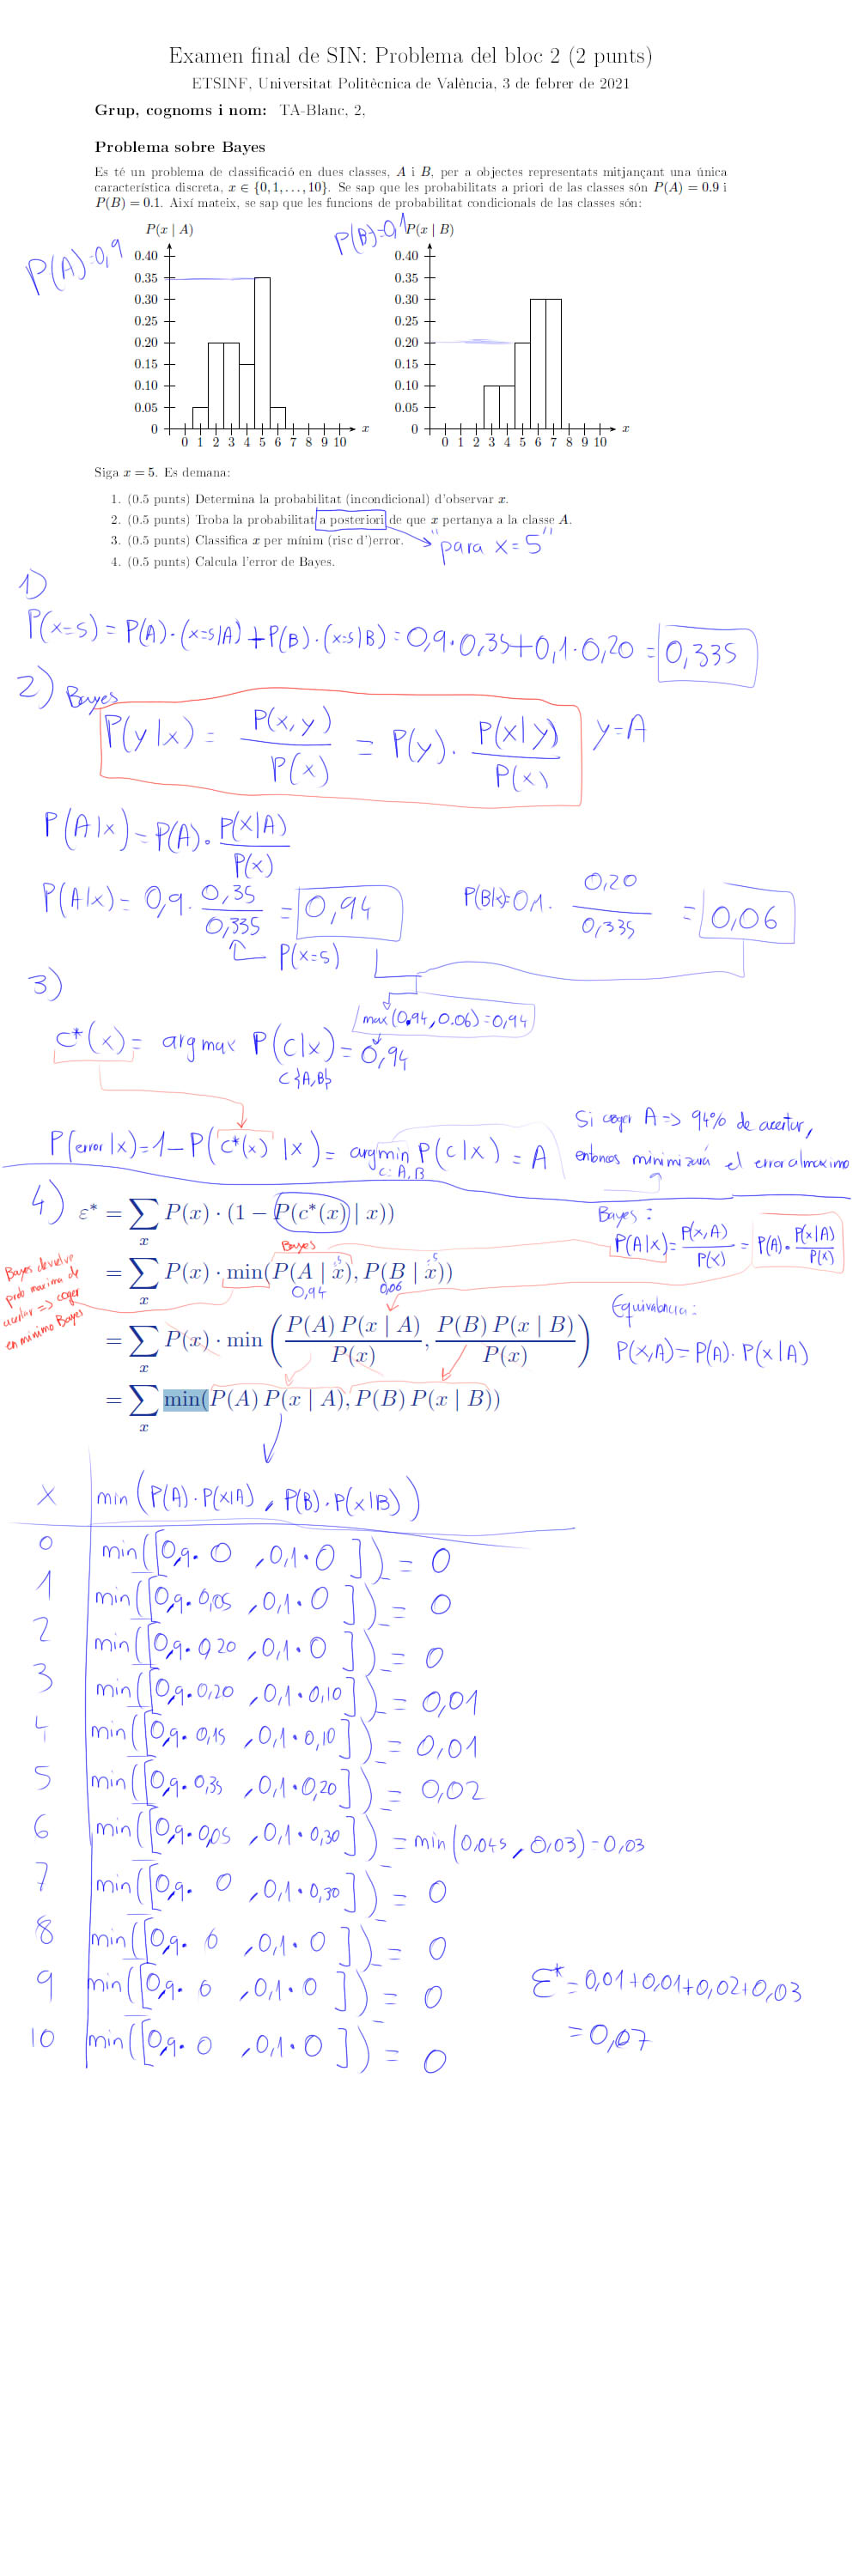 Examen final de SIN: Problema del bloc 2 (2 punts)
ETSINF, Universitat Politècnica de València, 3 de febrer de 2021
Grup, cognoms i nom: TA-Blanc, 2,
Problema sobre Bayes
Es té un problema de classificació en dues classes, A i B, per a objectes representats mitjançant una única
característica discreta, x ∈ {0, 1, . . . , 10}. Se sap que les probabilitats a priori de las classes són P(A) = 0.9 i
P(B) = 0.1. Així mateix, se sap que les funcions de probabilitat condicionals de las classes són:
P(A)=0,9
P(x | A)
0.40
0.35
0.30
0.25
0.20
0.15
0.10
0.05
0
0 1 2 3 4 5 6 7 8 9 10 x
P(B)=0,1
P(x | B)
0.40
0.35
0.30
0.25
0.20
0.15
0.10
0.05
0
0 1 2 3 4 5 6 7 8 9 10 x
Siga x = 5. Es demana:
1. (0.5 punts) Determina la probabilitat (incondicional) d'observar x.
2. (0.5 punts) Troba la probabilitat a posteriori de que x pertanya a la classe A.
3. (0.5 punts) Classifica x per mínim (risc d')error.
"para x=5"
4. (0.5 punts) Calcula l'error de Bayes.
1)
P(x=5) = P(A)·(x=5|A) + P(B)·(x=5|B) = 0,9·0,35+0,1·0,20 = 0,335
2) Bayes
P(y|x) = P(x,y) / P(x) = P(y)· P(x|y) / P(x) y=A
P(A|x) = P(A)· P(x|A) / P(x)
P(A|x) = 0,9· 0,35 / 0,335 = 0,94 P(B|x)=0,1· 0,20 / 0,335 = 0,06
P(x=5)
3)
max(0.94, 0.06) = 0,94
c*(x) = argmax P(c|x) = 0,94
c {A,B}
Si coger A => 94% de acertar,
entonces minimizará el error al maximo
P(error|x)=1-P(c*(x) |x) = argmin P(c|x) = A
c: A, B
4) ε* = ∑x P(x) · (1 − P(c*(x) | x))
Bayes:
P(A|x) = P(x,A) / P(x) = P(A)· P(x|A) / P(x)
Bayes
= ∑x P(x) · min(P(A | x), P(B | x))
:5 :5
0,94 0,06
Bayes devuelve
prob maxima de
acertar => coger
en minimo Bayes
Equivalencia:
P(x,A) = P(A)· P(x|A)
= ∑x P(x) · min ( P(A) P(x | A) / P(x) , P(B) P(x | B) / P(x) )
= ∑x min(P(A) P(x | A), P(B) P(x | B))
x min(P(A)·P(x|A) , P(B)·P(x|B))
0 min([0,9· 0 ,0,1·0 ]) = 0
1 min([0,9·0,05 ,0,1·0 ]) = 0
2 min([0,9·0,20 ,0,1·0 ]) = 0
3 min([0,9·0,20 ,0,1·0,10]) = 0,01
4 min([0,9·0,15 ,0,1·0,10]) = 0,01
5 min([0,9·0,35 ,0,1·0,20]) = 0,02
6 min([0,9·0,05 ,0,1·0,30]) = min(0,045, 0,03) = 0,03
7 min([0,9· 0 ,0,1·0,30]) = 0
8 min([0,9· 0 ,0,1·0 ]) = 0
9 min([0,9· 0 ,0,1·0 ]) = 0
10 min([0,9· 0 ,0,1·0 ]) = 0
ε* = 0,01+0,01+0,02+0,03
= 0,07